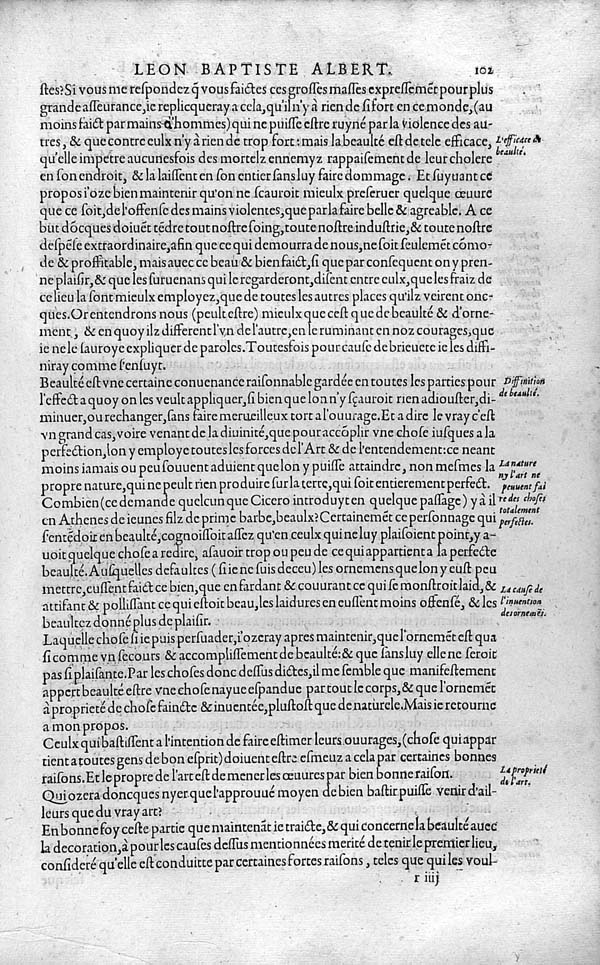 LEON BAPTISTE ALBERT. 102
stes? Si vous me respondez q̃ vous faictes ces grosses masses expressemẽt pour plus
grande asseurance, ie replicqueray a cela, qu'il n'y à rien de si fort en ce monde, (au
moins faict par mains d'hommes) qui ne puisse estre ruyné par la violence des au-
tres, & que contre eulx n'y à rien de trop fort: mais la beaulté est de tele efficace,
L'efficace de
beaulté.
qu'elle impetre aucunesfois des mortelz ennemyz rappaisement de leur cholere
en son endroit, & la laissent en son entier sans luy faire dommage. Et suyuant ce
propos i'oze bien maintenir qu'on ne scauroit mieulx preseruer quelque œuure
que ce soit, de l'offense des mains violentes, que par la faire belle & agreable. A ce
but dõcques doiuẽt tẽdre tout nostre soing, toute nostre industrie, & toute nostre
despẽse extraordinaire, afin que ce qui demourra de nous, ne soit seulemẽt cõmo-
de & proffitable, mais auec ce beau & bien faict, si que par consequent on y pren-
ne plaisir, & que les suruenans qui le regarderont, disent entre eulx, que les fraiz de
ce lieu la sont mieulx employez, que de toutes les autres places qu'ilz veirent onc-
ques. Or entendrons nous (peult estre) mieulx que cest que de beaulté & d'orne-
ment, & en quoy ilz different l'vn de l'autre, en le ruminant en noz courages, que
ie ne le sauroye expliquer de paroles. Toutesfois pour cause de brieuete ie les diffi-
niray comme s'ensuyt.
Beaulté est vne certaine conuenance raisonnable gardée en toutes les parties pour
Diffinition
de beaulté.
l'effect a quoy on les veult appliquer, si bien que lon n'y sçauroit rien adiouster, di-
minuer, ou rechanger, sans faire merueilleux tort a l'ouurage. Et a dire le vray c'est
vn grand cas, voire venant de la diuinité, que pour accõplir vne chose iusques a la
perfection, lon y employe toutes les forces de l'Art & de l'entendement: ce neant
moins iamais ou peu souuent aduient que lon y puisse attaindre, non mesmes la
La nature
ny l'art ne
peuuent fai
re des choses
totalement
perfectes.
propre nature, qui ne peult rien produire sur la terre, qui soit entierement perfect.
Combien (ce demande quelcun que Cicero introduyt en quelque passage) y à il
en Athenes de ieunes filz de prime barbe, beaulx? Certainemẽt ce personnage qui
s'entẽdoit en beaulté, cognoissoit assez qu'en ceulx qui ne luy plaisoient point, y a-
uoit quelque chose a redire, asauoir trop ou peu de ce qui appartient a la perfecte
beaulté. Ausquelles defaultes (si ie ne suis deceu) les ornemens que lon y eust peu
mettre, eussent faict ce bien, que en fardant & couurant ce qui se monstroit laid, &
La cause de
l'inuention
des ornemẽs.
attifant & pollissant ce qui estoit beau, les laidures en eussent moins offensé, & les
beaultez donné plus de plaisir.
Laquelle chose si ie puis persuader, i'ozeray apres maintenir, que l'ornemẽt est qua
si comme vn secours & accomplissement de beaulté: & que sans luy elle ne seroit
pas si plaisante. Par les choses donc dessus dictes, il me semble que manifestement
appert beaulté estre vne chose nayue espandue par tout le corps, & que l'ornemẽt
à proprieté de chose faincte & inuentée, plustost que de naturele. Mais ie retourne
a mon propos.
Ceulx qui bastissent a l'intention de faire estimer leurs ouurages, (chose qui appar
tient a toutes gens de bon esprit) doiuent estre esmeuz a cela par certaines bonnes
raisons. Et le propre de l'art est de mener les œuures par bien bonne raison.
La proprieté
de l'art.
Qui ozera doncques nyer que l'approuué moyen de bien bastir puisse venir d'ail-
leurs que du vray art?
En bonne foy ceste partie que maintenãt ie traicte, & qui concerne la beaulté auec
la decoration, à pour les causes dessus mentionnées merité de tenir le premier lieu,
consideré qu'elle est conduitte par certaines fortes raisons, teles que qui les voul-
r iiij